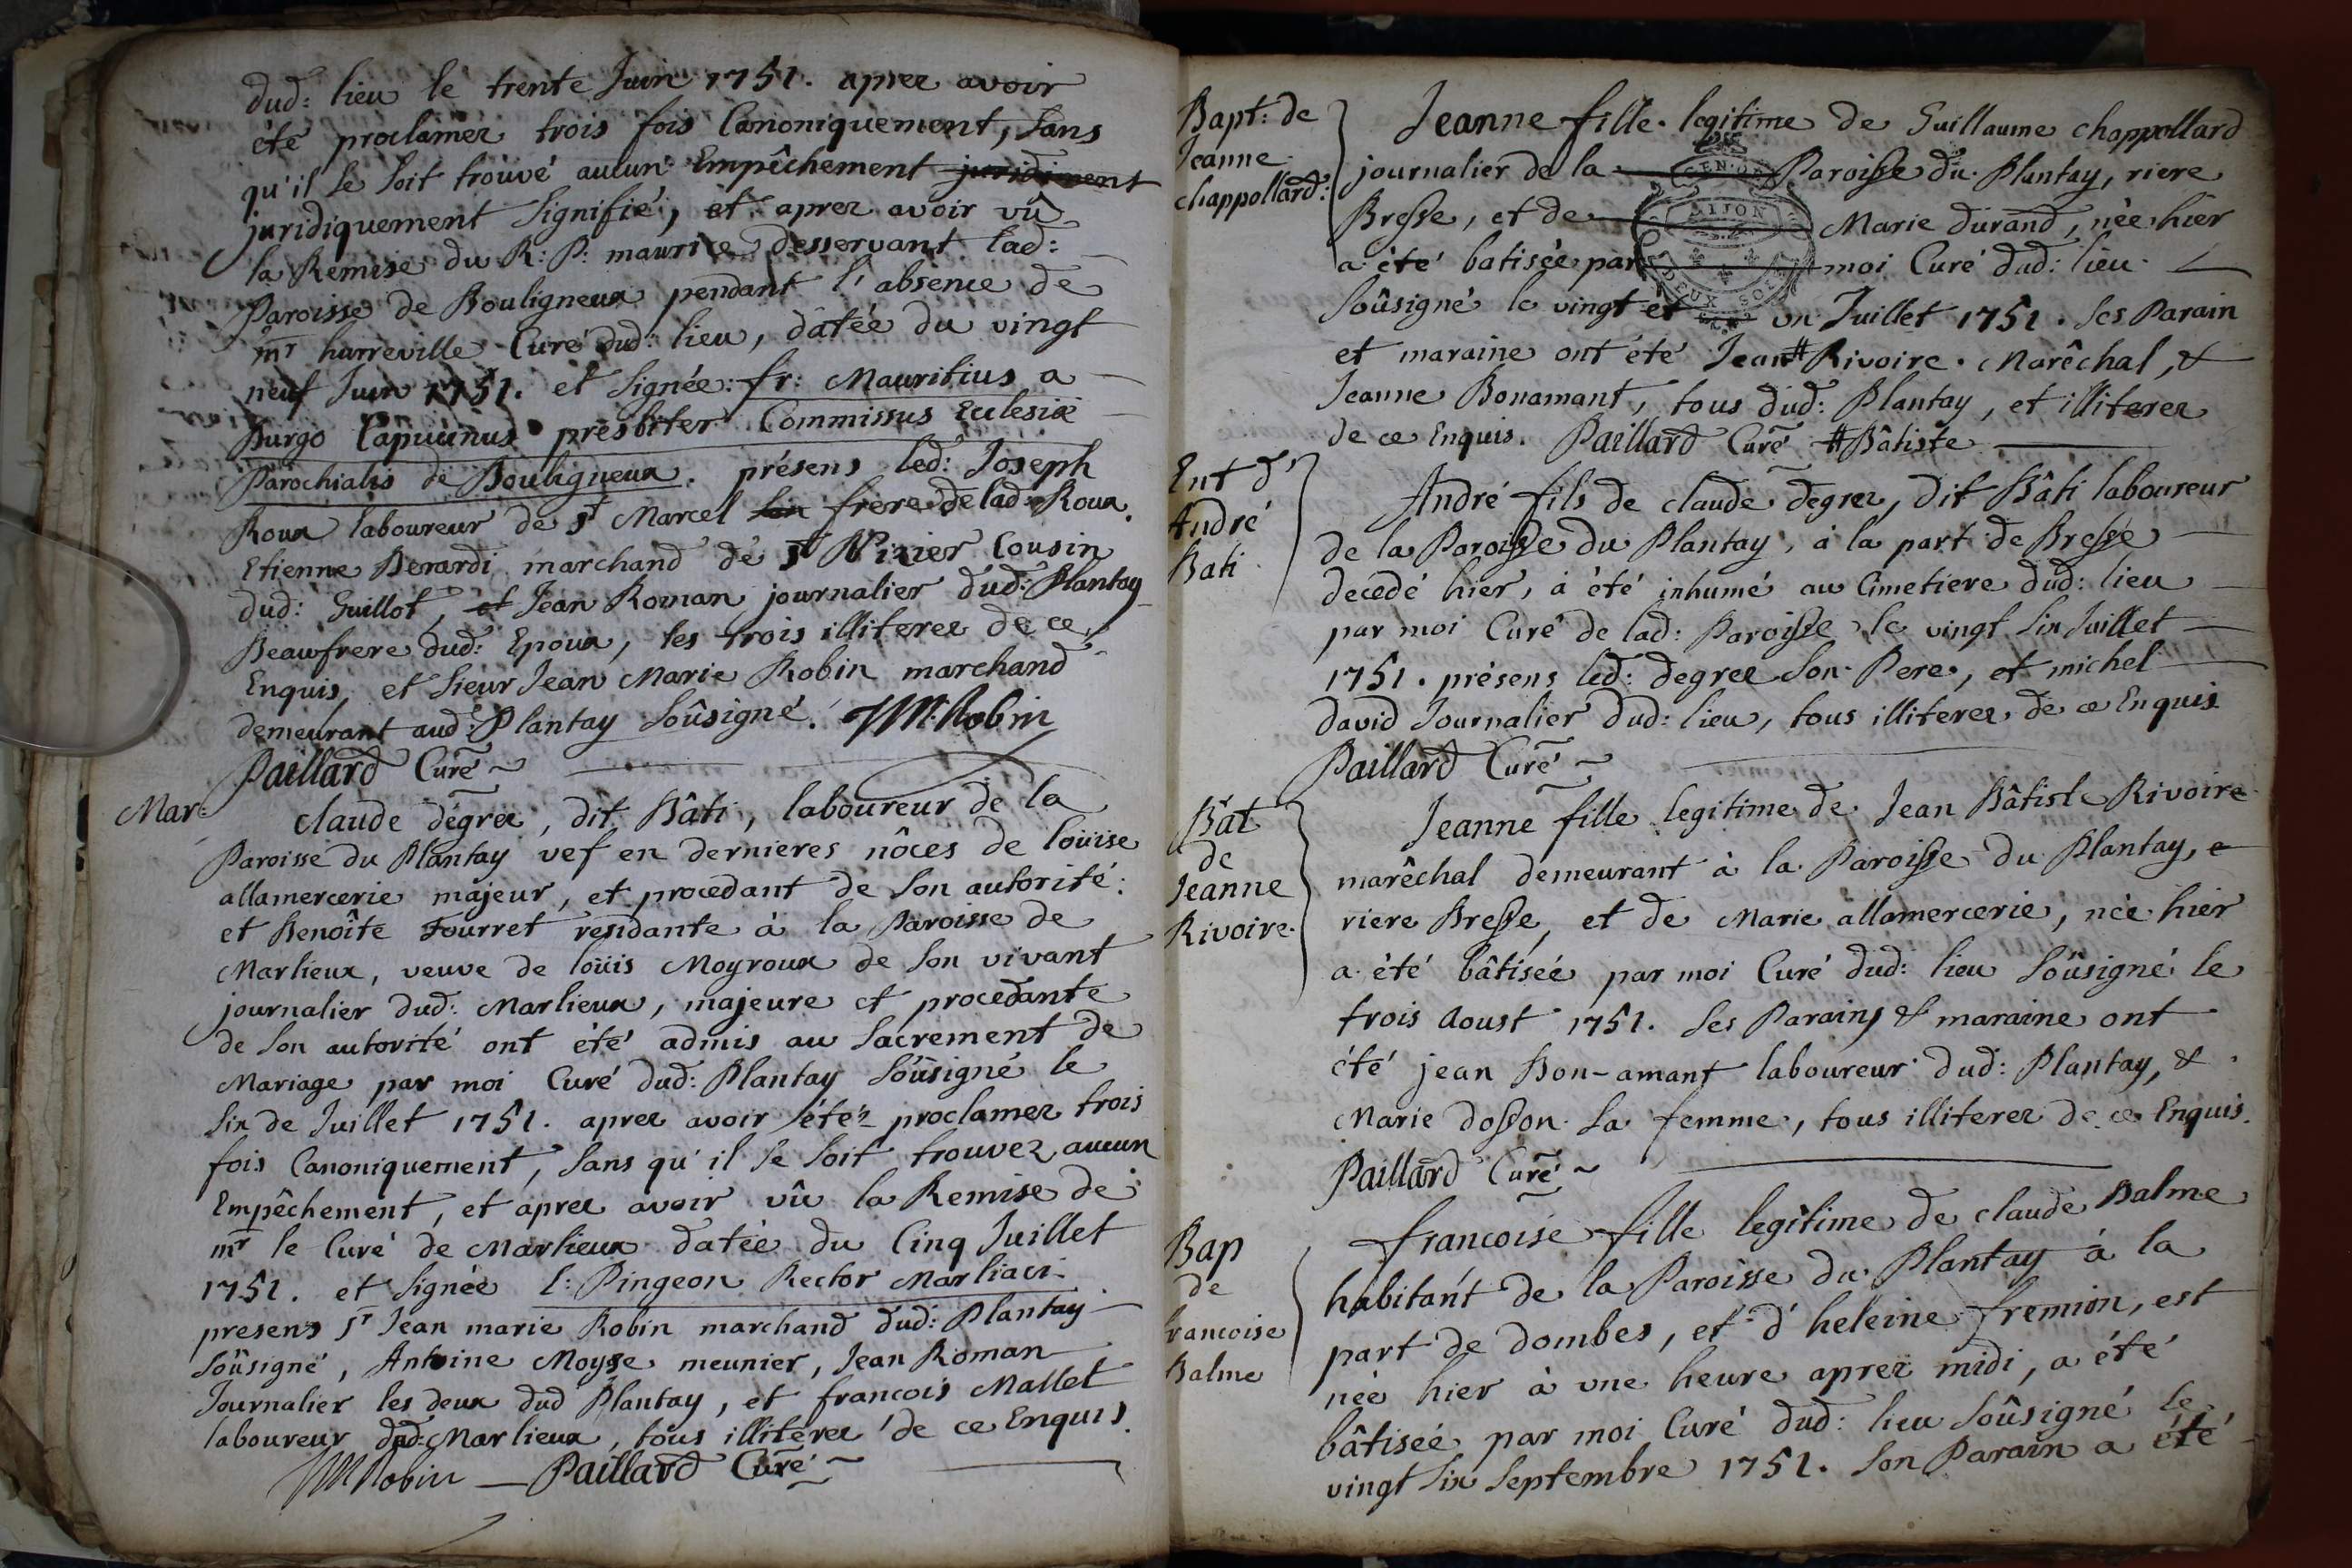 dud: lieu le trente Juin 1751. aprez avoir
été proclamez trois fois Canoniquement, sans
qu'il se soit trouvé aucun Empêchement juridiment
juridiquement signifié, et aprez avoir vû
la Remise du R: P: maurice desservant lad:
Paroisse de Bouligneux pendant l'absence de
mr hurreville Curé dud: lieu, dâtée du vingt
neuf Juin 1751. et signée: fr: Mauritius a
Burgo Capucinus presbiter Commissus Ecclesiæ
Parochialis de Bouligneux. présens led: Joseph
Roux laboureur de St Marcel son frere de lad: Roux.
Etienne Berardi marchand de St Nizier Cousin
dud: Guillot, et Jean Roman journalier dud: Plantay
Beaufrere dud: Epoux, les trois illiterez de ce
Enquis, et sieur Jean Marie Robin marchand
demeurant aud: Plantay soûsigné. JM Robin
Paillard Curé
Mar:
claude dégrez, dit Bâti, laboureur de la
Paroisse du Plantay vef en dernieres nôces de loüise
allamercerie majeur, et procedant de son autorité:
et Benoîte Fourret residante à la Paroisse de
Marlieux, veuve de loüis Moyroux de son vivant
journalier dud: Marlieux, majeure et procedante
de son autorité ont été admis au sacrement de
Mariage par moi Curé dud: Plantay soûsigné le
six de Juillet 1751. aprez avoir étéz proclamez trois
fois Canoniquement, sans qu'il se soit trouvez aucun
Empêchement, et aprez avoir vû la Remise de
mr le Curé de Marlieux datée du Cinq Juillet
1751. et signée C: Pingeon Rector Marliaci
presens sr Jean marie Robin marchand dud: Plantay
soûsigné, Antoine Moyse meunier, Jean Roman
Journalier les deux dud Plantay, et francois Mallet
laboureur dud: Marlieux, tous illiterez de ce Enquis.
JM Robin Paillard Curé
Bapt: de
Jeanne
chappollard:
Jeanne fille legitime de Guillaume chappollard
journalier de la Paroisse du Plantay, riere
Bresse, et de Marie durand, née hier
a été batisée par moi Curé dud: lieu
soûsigné le vingt et un Juillet 1751. ses Parain
et maraine ont été Jean # Rivoire Marêchal, &
Jeanne Bonamant, tous dud: Plantay, et illiterez
de ce Enquis. Paillard Curé # Bâtiste
Ent d'
André
Bati
André fils de claude degrez, dit Bâti laboureur
de la Paroisse du Plantay, à la part de Bresse
decedé hier, à été inhumé au Cimetiere dud: lieu
par moi Curé de lad: Paroisse le vingt six Juillet
1751. présens led: degrez son Pere, et michel
david Journalier dud: lieu, tous illiterez de ce Enquis
Paillard Curé
Bât
de
Jeanne
Rivoire
Jeanne fille legitime de Jean Bâtiste Rivoire
marêchal demeurant à la Paroisse du Plantay,
riere Bresse, et de Marie allamercerie, née hier
a été bâtisée par moi Curé dud: lieu soûsigné le
trois Aoust 1751. Ses Parains & maraine ont
été jean Bon-amant laboureur dud: Plantay, &
Marie dosson sa femme, tous illiterez de ce Enquis.
Paillard Curé
Bap
de
francoise
Balme
francoise fille legitime de claude Balme
habitant de la Paroisse du Plantay à la
part de dombes, et d'heleine fremion, est
née hier à une heure aprez midi, a été
bâtisée par moi Curé dud: lieu soûsigné le
vingt six Septembre 1751. Son Parain a été